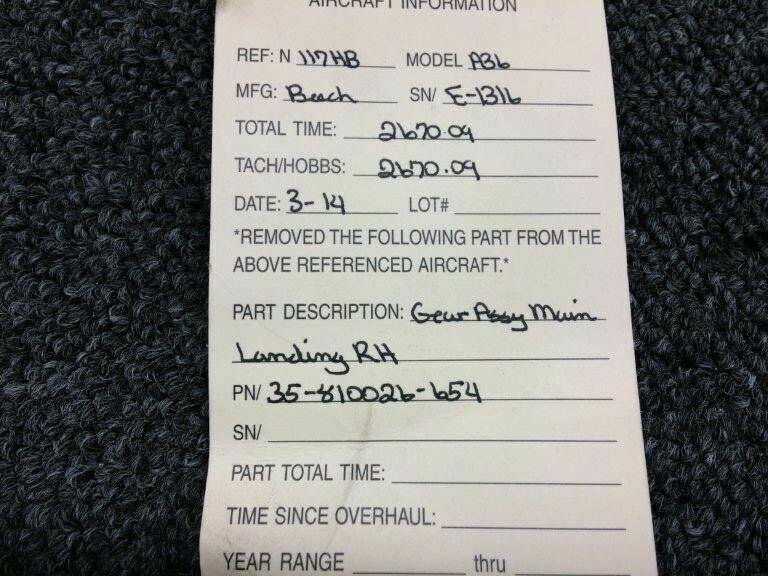 AIRCRAFT INFORMATION
REF: N 117HB MODEL A36
MFG: Beech SN/ E-1316
TOTAL TIME: 2670.09
TACH/HOBBS: 2670.09
DATE: 3-14 LOT#
*REMOVED THE FOLLOWING PART FROM THE
ABOVE REFERENCED AIRCRAFT.*
PART DESCRIPTION: Gear Assy Main
Landing RH
PN/ 35-810026-654
SN/
PART TOTAL TIME:
TIME SINCE OVERHAUL:
YEAR RANGE thru